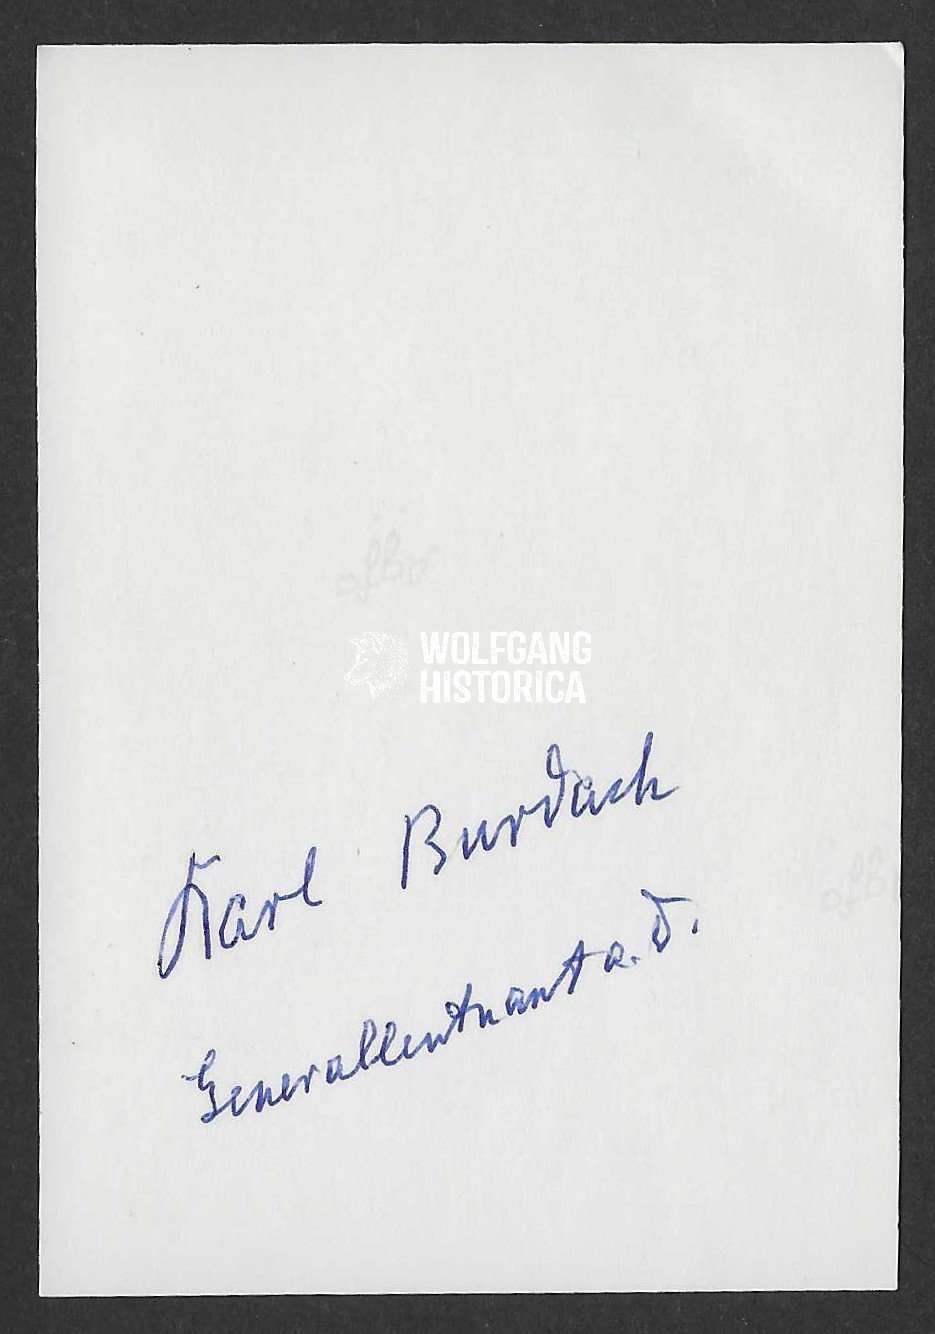 WOLFGANG
HISTORICA
Karl Burdach
Generalleutnant a. D.